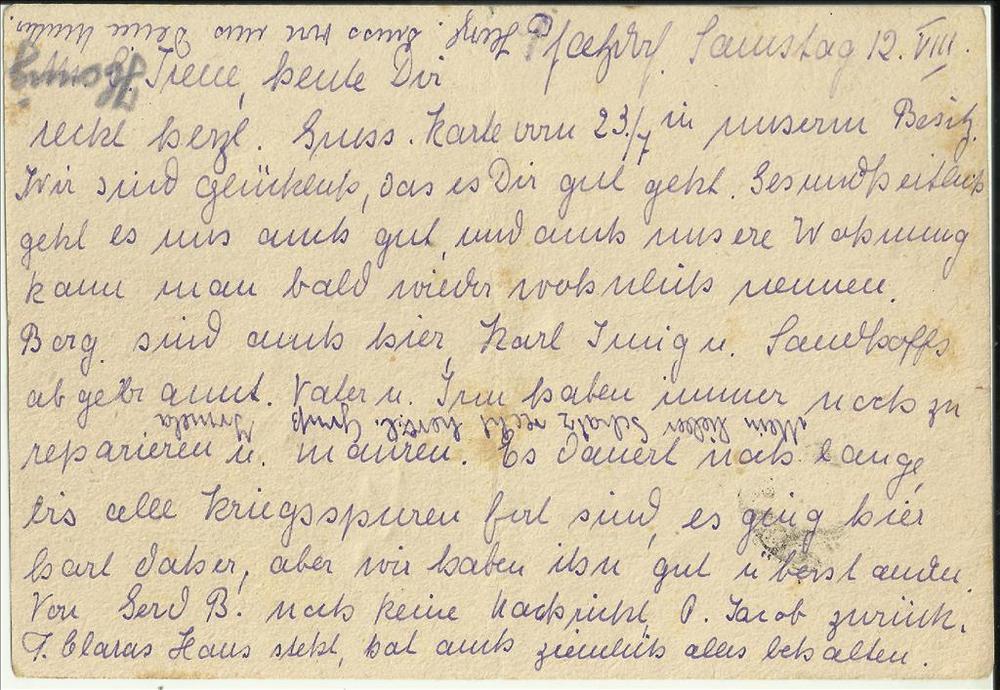 Herzl. Gruss von uns Deine Mutter
Pfalzdorf. Samstag 12. VIII.
Irene, heute Dir
recht herzl. Gruss. Karte vom 23./7 in unserm Besitz.
Wir sind glücklich, das es Dir gut geht. Gesundheitlich
geht es uns auch gut, und auch unsere Wohnung
kann man bald wieder wohnlich nennen.
Borg. sind auch hier, Karl Imig u. Sandhoffs
abgebrannt. Vater u. Irm haben immer noch zu
Mein lieber Schatz recht herzl. Gruß Irmela
reparieren u. mauren. Es dauert noch lange,
bis alle Kriegsspuren fort sind, es ging hier
hart daher, aber wir haben ihn gut überstanden.
Von Gerd B. noch keine Nachricht, P. Jacob zurück.
T. Claras Haus steht, hat auch ziemlich alles behalten.